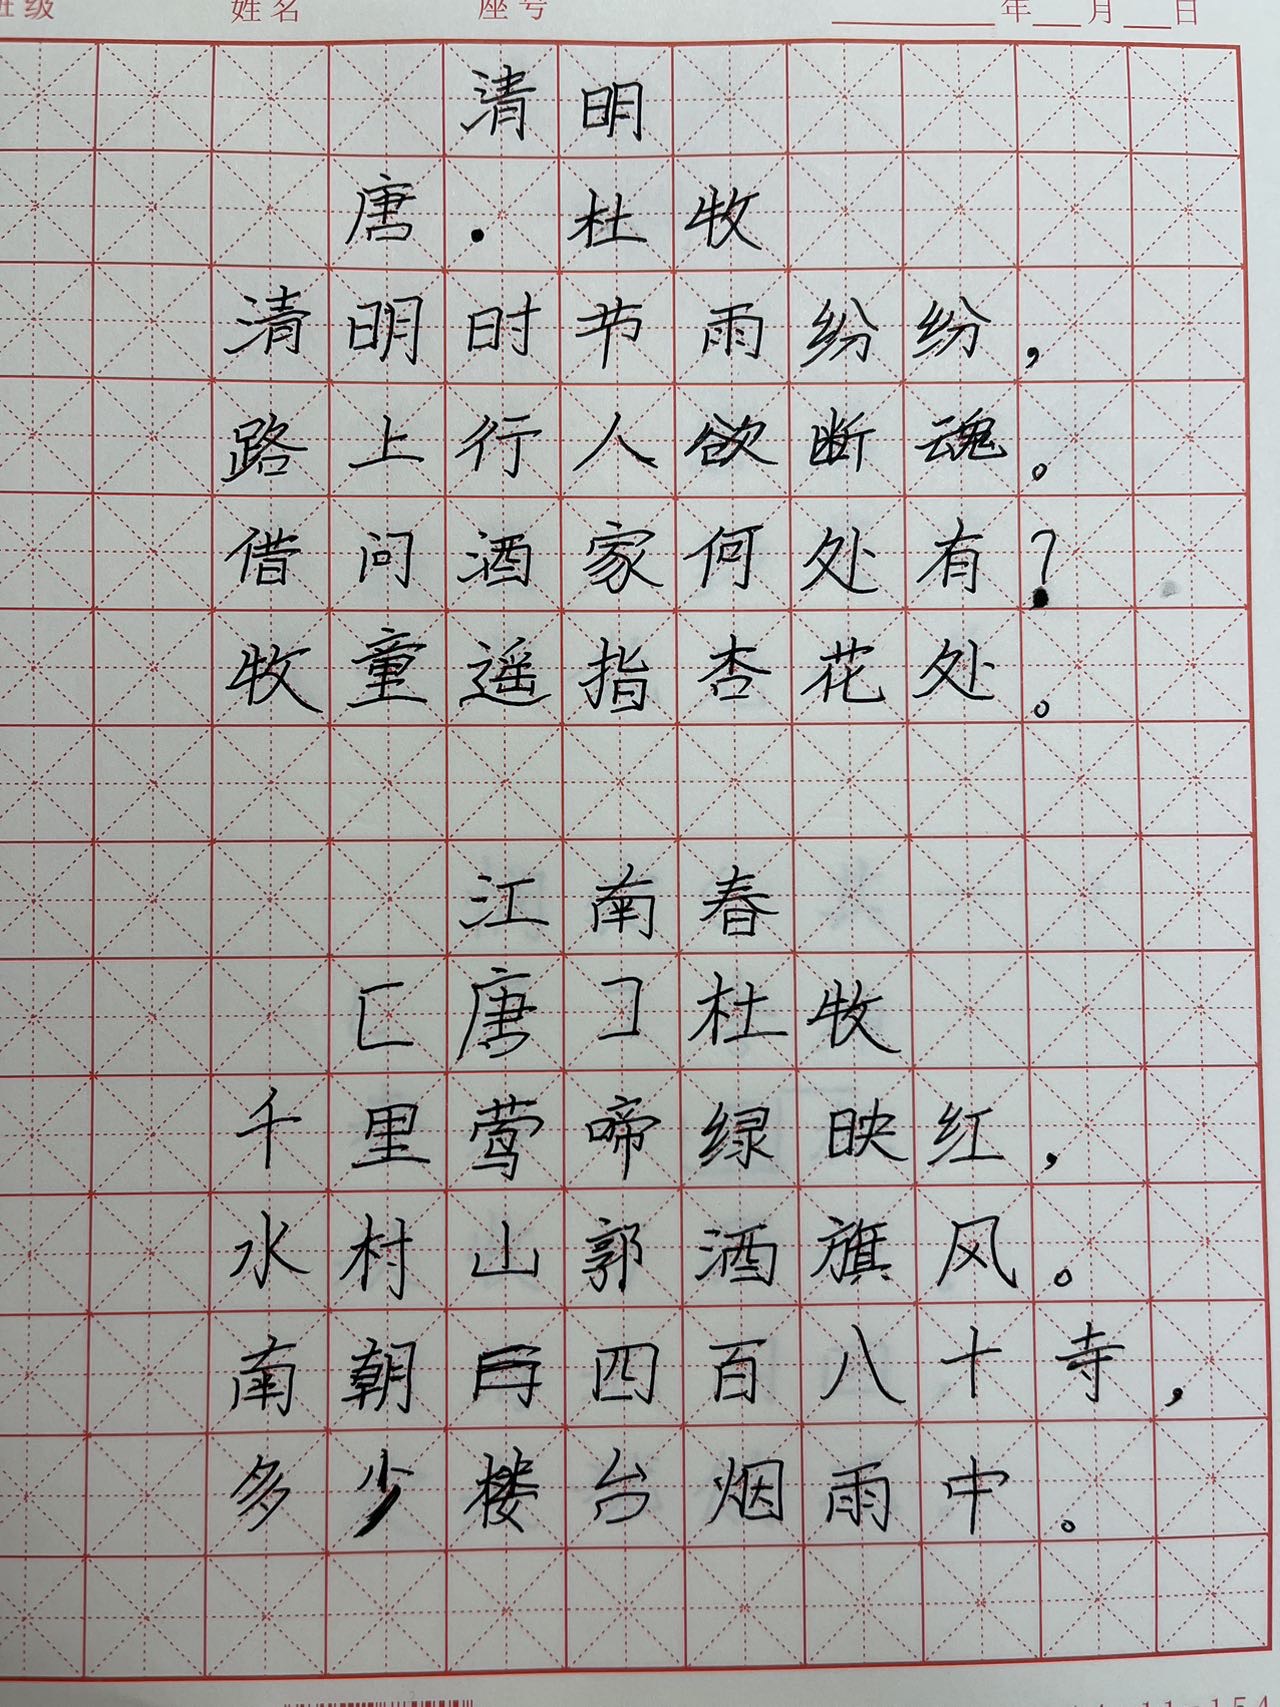 班级 姓名 座号 年 月 日
清明
唐·杜牧
清明时节雨纷纷，
路上行人欲断魂。
借问酒家何处有？
牧童遥指杏花处。
江南春
[唐]杜牧
千里莺啼绿映红，
水村山郭酒旗风。
南朝四百八十寺，
多少楼台烟雨中。